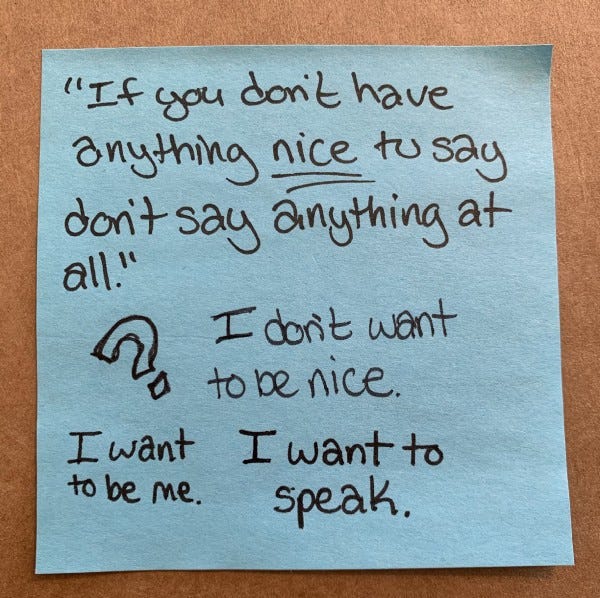 "If you don't have
anything nice to say
don't say anything at
all."
? I don't want
to be nice.
I want I want to
to be me. speak.